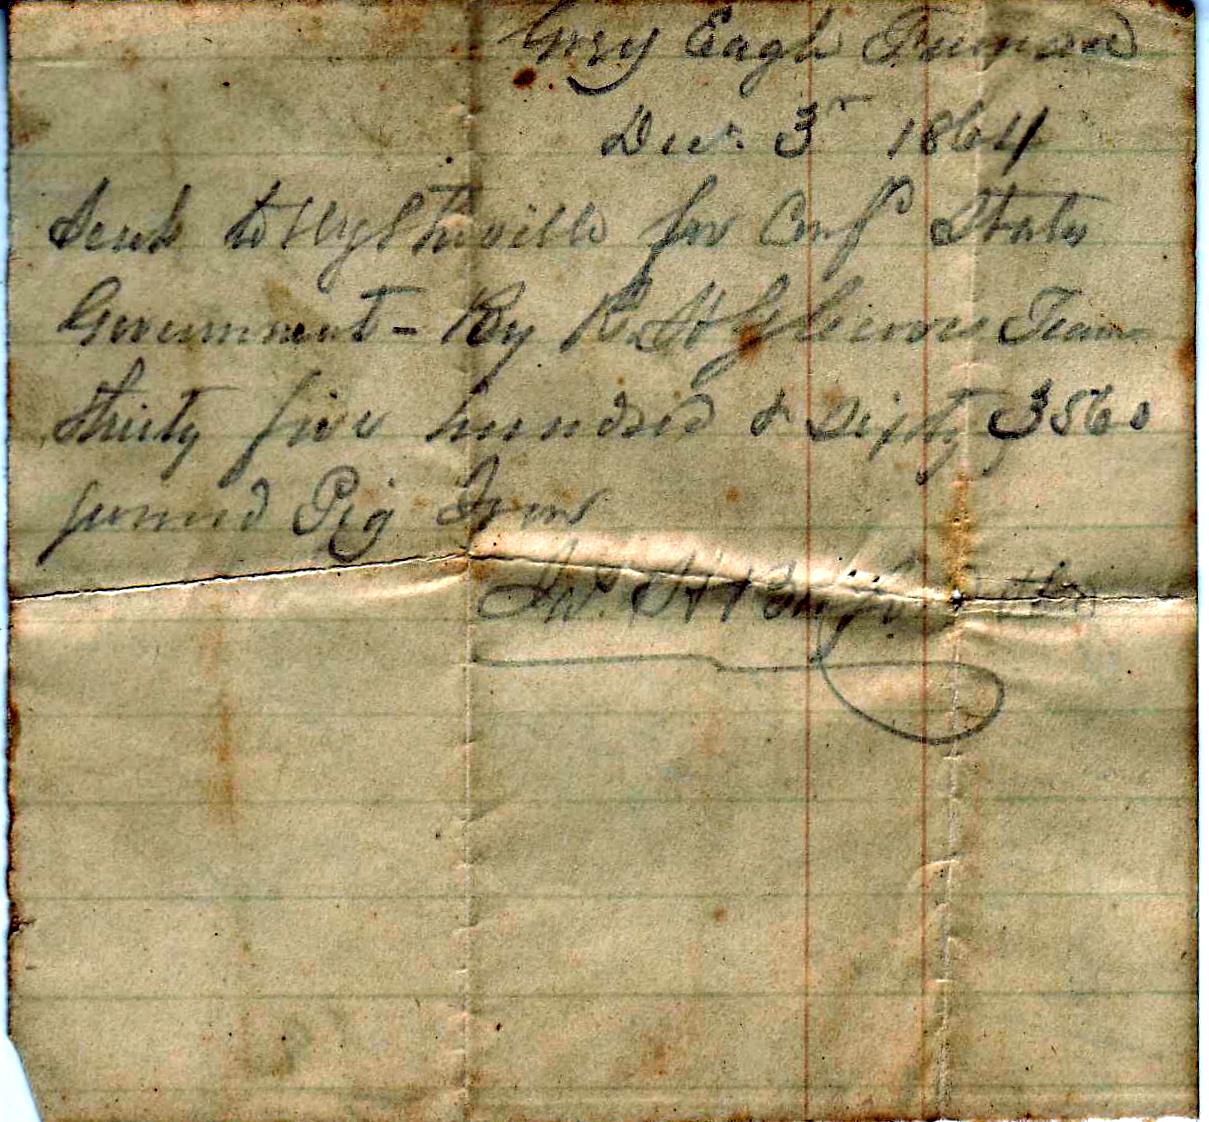 Grey Eagle Furnace
Dec. 3r 1864
Sent to Wytheville for Conf States
Government - By R. H Gleaves Team
thirty five hundred & Sixty 3560
pound Pig Iron